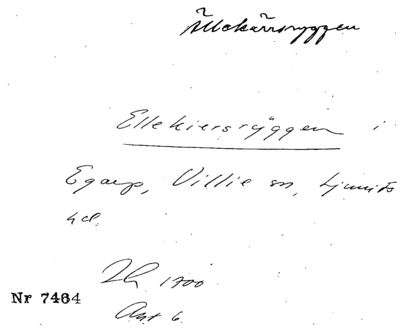 Ällekärrsryggen
Ellekiersryggen i
Egarp, Villie sn, Ljunits
hd.
1700
Nr 7464
Akt 6.